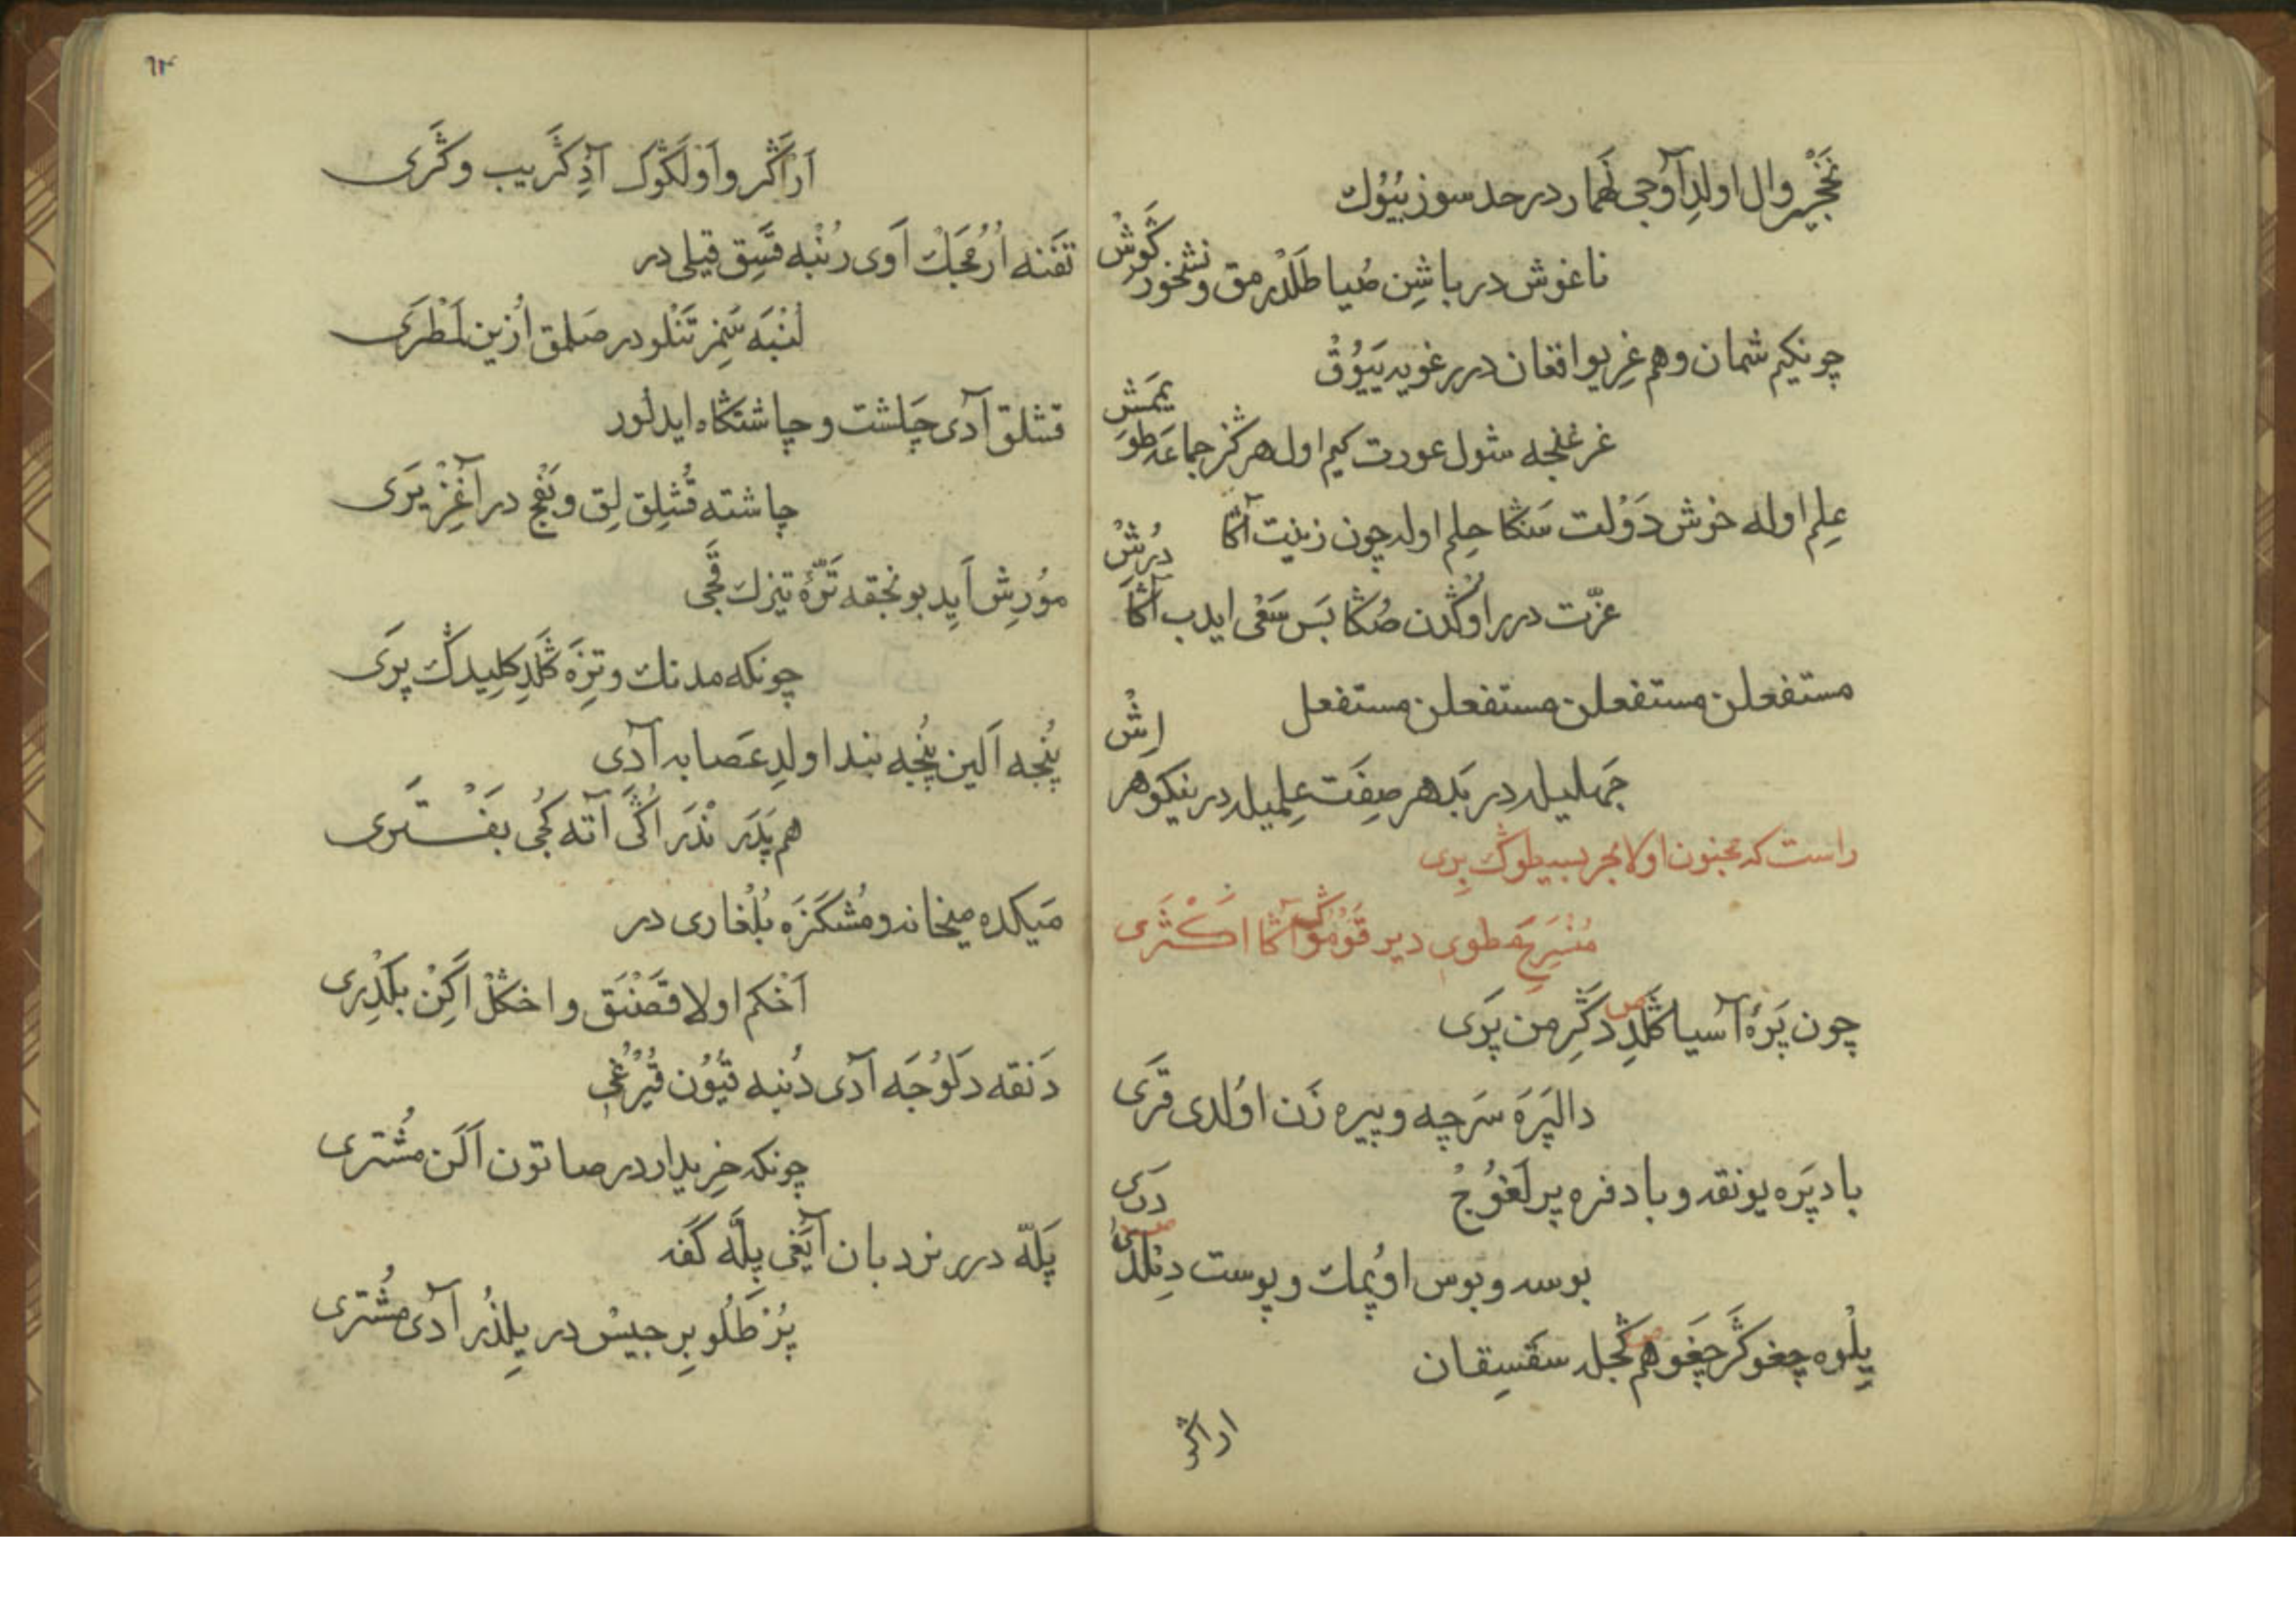 نَخْجِيروال اولدِ آوجى لَهمار در حدسوز بُيُوك
ناغوش در باشِن صُيا طَلْدرمق و نشخور كَوِش
چونكيم شمان و هم غِريو افغان درر غويه بَيُوقْ
غرغنجه شول عورت كيم اوله هركز جماعه طويَمَش
عِلم اوله خوش دَوْلت سَنكا حِلم اوله چون زينت آكا
عزّت درر اوكدن صُكا بَس سَعْى ايدب آكا دُرُشْ
مستفعلن مستفعلن مستفعلن مستفعل
جَهليله در بَد هر صِفَت عِلميله در نيكو هر اِش
راست كه مجنون اولا بحر بسيطوڭ بِرى
مُنْسَرِحِ مطوى دير قَوْموڭ آكا اكْثَرى
چون پَرّهٔ آسيا كَلدِ دكِرمن پَرى
دالپَرَه سَرچه و پيره زَن اوُلدى قَرى
باد پَره يونقه و باد فره پر لَغوُجْ
بوسه و بوس اوُپمك و پوست دِنلدى دَرى
پِلْوه چغو كَر چَغَو هم كجله سقسِقان
اراكر
٦٣
اَراكَر و اَوْلَكوُك آدِ كَريب و كَرى
تَفْنه اُرُمْجَك اَوى رُنْبه قَسِق قيلى در
لُنْبَه سَمِز تَنْلو در صَلمق اُزين لَمْطَرى
قشلق آدى چَلشت و چاشتكاه ايدلور
چاشته قُشلِق لِق و بَفْج در آغِزْ يَرى
موُرِش اَيِد بونجقه تَرّهٔ تيزك قِجى
چونكه مدنك و تِزَه كَلدِ كلِيدك پَرى
پُنْجه اَلين پَنْجه بند اولدِ عَصابه آدى
هم پَدَر نْدَر اُكَى آته كُجى بَفْتَرى
مَيكده ميخانه و مُشكَزَه بُلْغارى در
اَخْكم اولا قَصْنَق و اخكَلْ اَكِنْ بَلْدِرى
دَنقه دَلوُجَه آدى دُنبه قُيُون قُيْرُغى
چونكه خِريدار در صاتون آلَن مُشْترى
پَلّه درر نردبان آيَغى پِلَّه كَفَه
پُرْطَلُو بِرجيسْ در يِلْدُز آدى مُشْترى